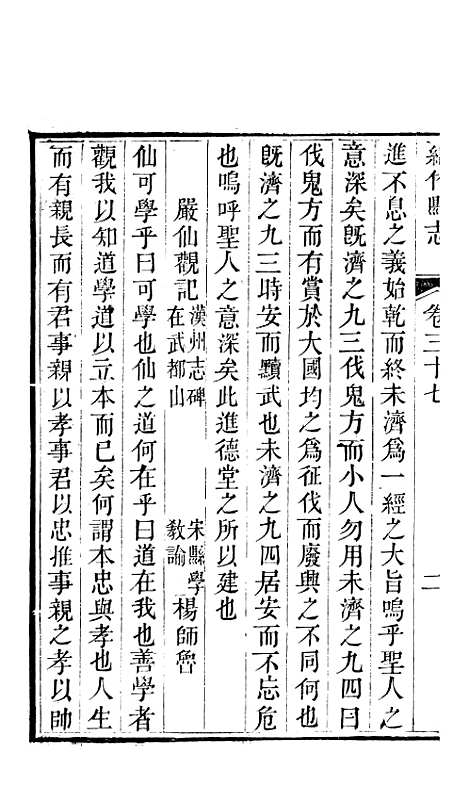 縣志 卷三十七 二
進不息之義始乾而終未濟爲一經之大旨嗚乎聖人之
意深矣旣濟之九三伐鬼方而小人勿用未濟之九四曰
伐鬼方而有賞於大國均之爲征伐而廢興之不同何也
旣濟之九三時安而黷武也未濟之九四居安而不忘危
也嗚呼聖人之意深矣此進德堂之所以建也
嚴仙觀記 漢州志碑在武都山 宋縣學敎諭 楊師魯
仙可學乎曰可學也仙之道何在乎曰道在我也善學者
觀我以知道學道以立本而已矣何謂本忠與孝也人生
而有親長而有君事親以孝事君以忠推事親之孝以帥